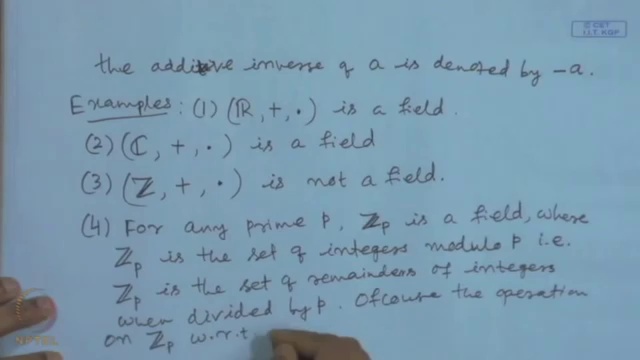 © CET
I.I.T. KGP
the additive inverse of a is denoted by -a.
Examples: (1) (ℝ, +, ·) is a field.
(2) (ℂ, +, ·) is a field
(3) (ℤ, +, ·) is not a field.
(4) For any prime p, ℤp is a field, where
ℤp is the set of integers modulo p i.e.
ℤp is the set of remainders of integers
when divided by p. Ofcourse the operation
on ℤp w.r.t
NPTEL